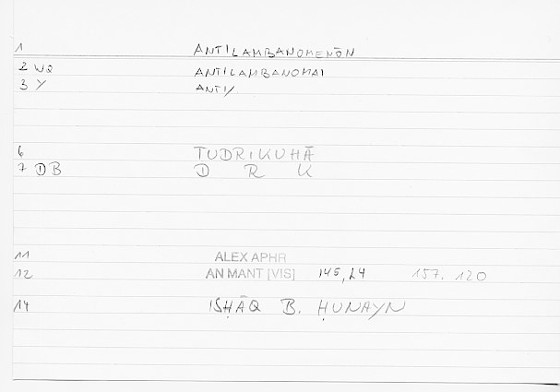 1 ANTILAMBANOMENŌN
2 WQ ANTILAMBANOMAI
3 Y ANTI/
6 TUDRIKUHĀ
7 DB D R K
11 ALEX APHR
12 AN MANT [VIS] 145,24 157.120
14 ISḤĀQ B. ḤUNAYN